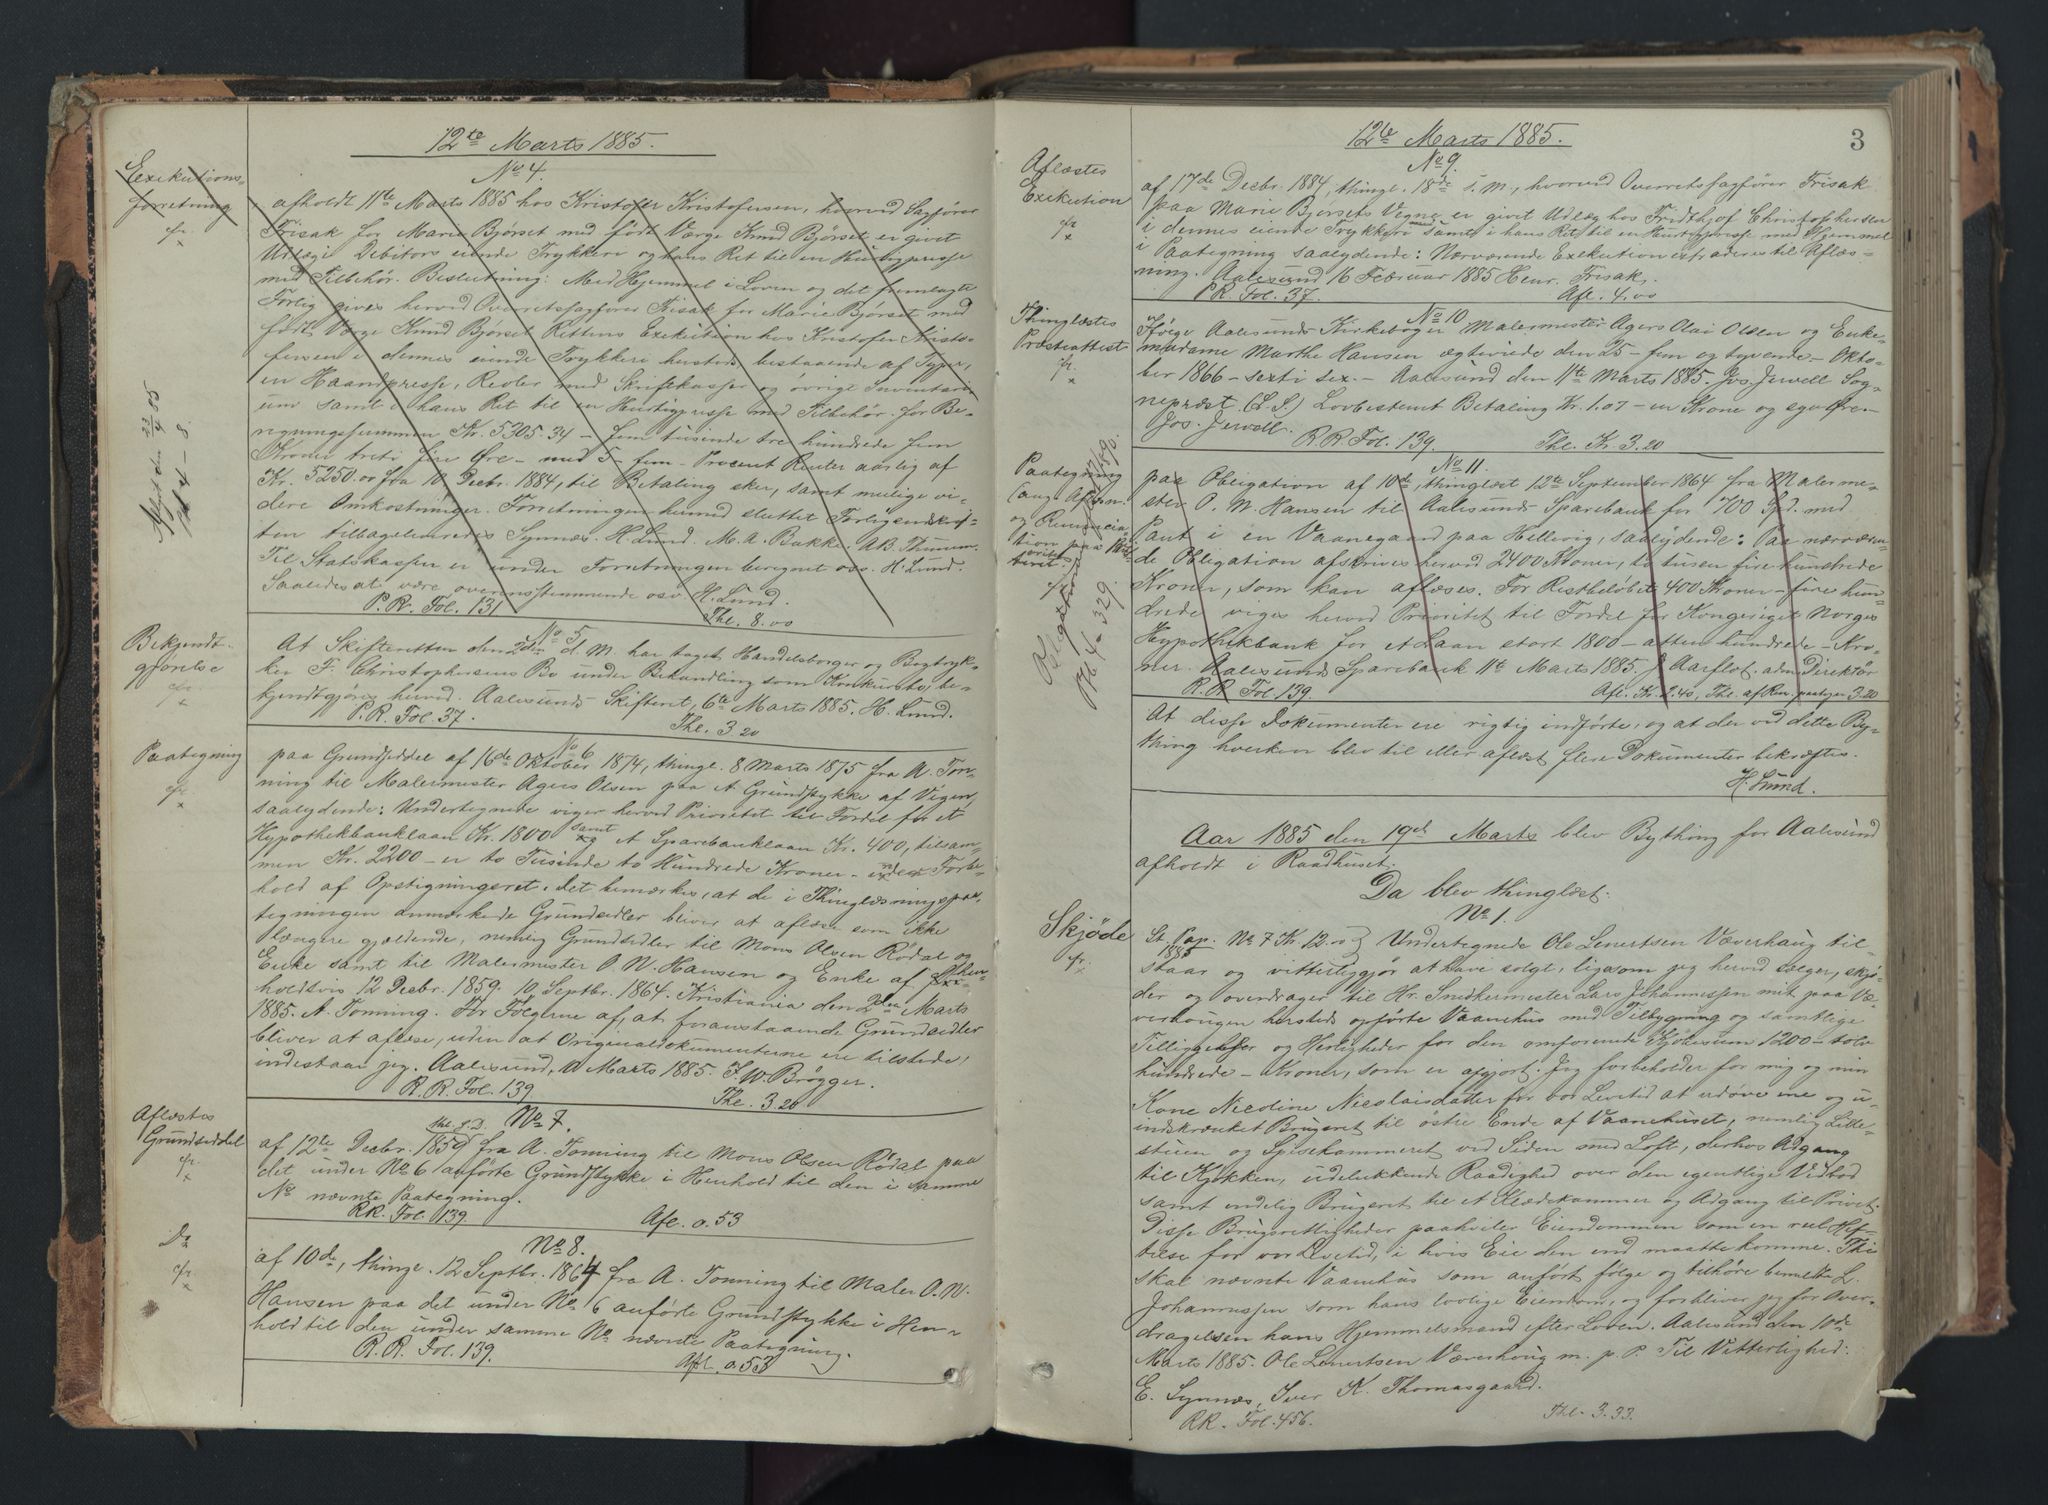 12te Marts 1885.
No 4.
Exekutions-
forretning
cfr.
x
afholdt 11te Marts 1885 hos Kristofer Kristofersen, hvorved Sagfører
Frisak for Marie Bjørset med født Værge Knud Bjørset er givet
Udlæg i Debitors eiende Trykkeri og hans Ret til en Hurtigpresse
med Tilbehør. Beslutning: Med Hjemmel i Loven og det fremlagte
Forlig gives herved Overretssagfører Frisak for Marie Bjørset med
født Værge Knud Bjørset Rettens Exekution hos Kristofer Kristo-
fersen i dennes eiende Trykkeri hersteds bestaaende af Typer,
en Haandpresse, Reoler med Skriftkasser og øvrige Inventari-
um samt i hans Ret til en Hurtigpresse med Tilbehør for Be-
regningssummen Kr. 5305.34 – fem tusinde tre hundrede fem
Kroner treti fire Øre – med 5 – fem – Procent Renter aarlig af
Kr. 5250.00 fra 10 Decbr. 1884, til Betaling sker, samt mulige vi-
dere Omkostninger. Forretningen hermed sluttet. Forligsudskrif-
ten tilbageleveredes Synnæs. H. Lund. M. A. Bakke. A.B. Thunem.
Til Statskassen er under Forretningen beregnet osv. H. Lund.
Saaledes at være overensstemmende osv H. Lund.
P. R. Fol. 131 Thl. 8.00
Aflæst den 23/4 85
Pb 4 – 8.
No 5
Bekjendt-
gjørelse
cfr.
x
At Skifteretten den 2den d. M. har taget Handelsborger og Bogtryk-
ker F. Christophersens Bo under Behandling som Konkursbo, be-
kjendtgjøres herved. Aalesunds Skifteret, 6te Marts 1885. H. Lund.
P. R. Fol. 37. Thl. 3.20
No 6
Paategning
cfr.
x
paa Grundseddel af 16de Oktober 1874, thingl. 8 Marts 1875 fra A. Ton-
ning til Malermester Agers Olsen paa et Grundstykke af Vigen,
saalydende: Undertegnede viger herved Prioritet til Fordel for et
Hypothekbanklaan Kr. 1800 samt et Sparebanklaan Kr. 400, tilsam-
men Kr. 2200 – er to Tusinde to Hundrede Kroner – under Forbe-
hold af Opstigningsret. Det bemærkes, at de i Thinglæsningspaa-
tegningen anmærkede Grundsedler bliver at aflæse som ikke
længere gjældende, nemlig Grundsedler til Mons Olsen Rødal og
Enke samt til Malermester O. W. Hansen og Enke af hen-
holdsvis 12 Decbr. 1859. 10 Septbr. 1864. Kristiania den 2den Marts
1885. A. Tonning. For Følgerne af, at foranstaaende Grundsedler
bliver at aflæse, uden at Originaldokumenterne ere tilstede,
indestaar jeg. Aalesund, 11 Marts 1885. F. W. Brøgger.
R. R. Fol. 139 Thl. 3.20
No 7.
Aflæstes
Grundseddel
cfr.
x
thl. s. D.
af 12te Decbr. 1859 fra A. Tonning til Mons Olsen Rødal paa
det under No 6 anførte Grundstykke i Henhold til den i samme
No nævnte Paategning.
RR. Fol. 139. Afl. 0.53
No 8.
Do
cfr.
x
af 10de, thingl. 12 Septbr. 1864 fra A. Tonning til Maler O. W.
Hansen paa det under No. 6 anførte Grundstykke i Hen-
hold til den under samme No nævnte Paategning.
R. R. Fol. 139. Afl. 0.53
3
12te Marts 1885.
No 9.
Aflæstes
Exekution
cfr
x
af 17de Decbr. 1884, thingl. 18de s. M., hvorved Overretssagfører Frisak
paa Marie Bjørsets Vegne er givet Udlæg hos Fridthjof Christophersen
i dennes eiende Trykkeri samt i hans Ret til en Hurtigpresse med Hjemmel
i Paategning saalydende: Nærværende Exekution extraderes til Aflæs-
ning. Aalesund 16 Februar 1885 Henr. Frisak.
P.R. Fol. 37. Afl. 4.00
No 10
Thinglæstes
Præsteattest
cfr.
x
Ifølge Aalesunds Kirkebøger Malermester Agers Olai Olsen og Enke-
madame Marthe Hansen ægteviede den 25 – fem og tyvende – Okto-
ber 1866 – sexti sex. – Aalesund den 11te Marts 1885. Jos. Jervell Sog-
nepræst. (L. S.) Lovbestemt Betaling Kr. 1.07 – en Krone og syv Øre –
Jos. Jervell.
R. R. Fol. 139. Thl. Kr. 3.20
No 11.
Paategning
(ang. Afskrivn.
og Renuncia-
tion paa Prio-
ritet
cfr
Pb 4 – 329.
paa Obligation af 10de, thinglæst 12te September 1864 fra Malerme-
ster O. W. Hansen til Aalesunds Sparebank for 700 Spd. med
Pant i en Vaanegaard paa Hellevig, saalydende: Paa nærværen-
de Obligation afskrives herved 2400 Kroner, to tusen fire hundrede
Kroner, som kan aflæses. For Restbeløbet 400 Kroner – fire hun-
drede viges herved Prioritet til Fordel for Kongeriget Norges
Hypothekbank for et Laan stort 1800 – atten hundrede – Kro-
ner. Aalesunds Sparebank 11te Marts 1885. J. Aarflot. adm. Direktør
R. R. Fol. 139. Afl. Kr. 2.40, Thl. af Ren. paategn 3.20
At disse Dokumenter ere rigtig indførte, og at der ved dette By-
thing hverken blev til eller aflæst flere Dokumenter bekræftes.
H. Lund.
Aar 1885 den 19de Marts blev Bything for Aalesund
afholdt i Raadhuset.
Da blev thinglæst.
No 1.
Skjøde
cfr.
x
St. Pap. No 7 Kr. 12.00 Undertegnede Ole Lenertsen Væverhaug til-
1885
staar og vitterliggjør at have solgt, ligesom jeg herved sælger, skjø-
der og overdrager til Hr. Snedkermester Lars Johannessen mit paa Væ-
verhougen hersteds opførte Vaanehus med Tilbygning og samtlige
Tilliggelser og Herligheder for den omforenede Kjøbesum 1200 – tolv
hundrede – Kroner, som er afgjort. Jeg forbeholder for mig og min
Kone Nicoline Nicolaisdatter for vor Levetid at udøve ene og u-
indskrænket Brugsret til østre Ende af Vaanehuset, nemlig Lille-
stuen og Spisekammeret ved Siden med Loft, derhos Adgang
til Kjøkken, udelukkende Raadighed over den egentlige Vedbod
samt endelig Brugsret til et Klædekammer og Adgang til Privet.
Disse Brugsrettigheder paahviler Eiendommen som en reel Hef-
telse for vor Levetid, i hvis Eie den end maatte komme. Thi
skal nævnte Vaanehus som anført følge og tilhøre bemeldte L.
Johannessen som hans lovlige Eiendom, og forbliver jeg for Over-
dragelsen hans Hjemmelsmand efter Loven. Aalesund den 10de
Marts 1885. Ole Lenertsen Væverhoug m. p. P. Til Vitterlighed:
E. Synnæs, Iver K. Thomasgaard.
RR. Fol. 456. Thl. 3.33.